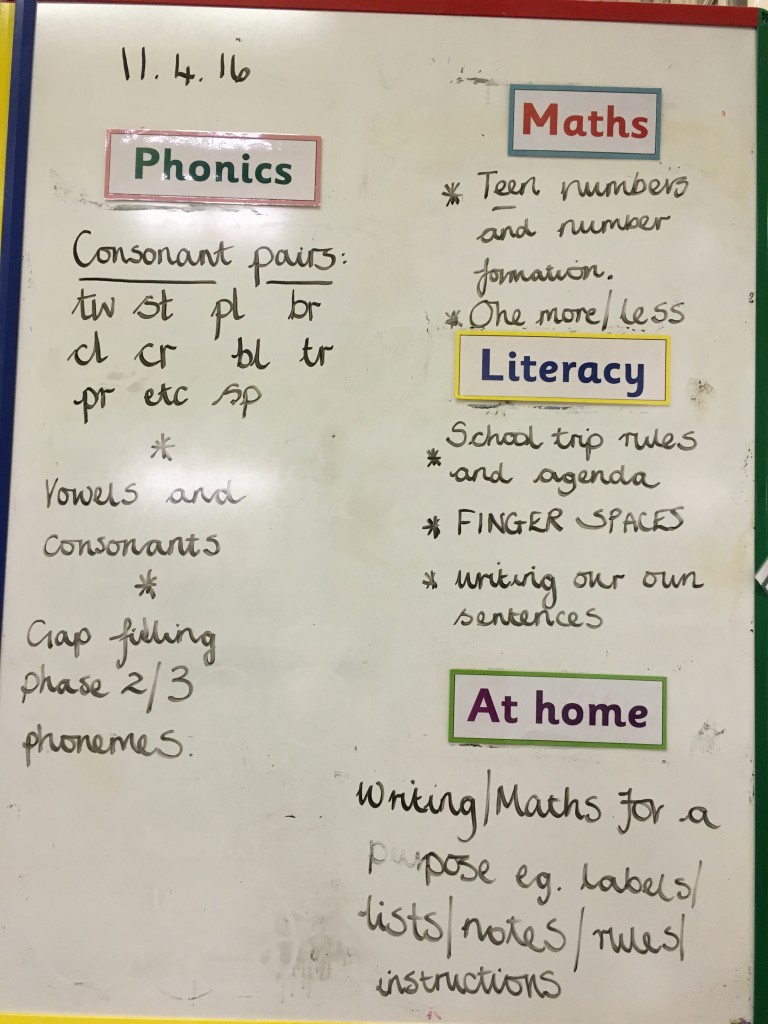 11.4.16
Phonics
Consonant pairs:
tw st pl br
cl cr bl tr
pr etc sp
*
Vowels and
consonants
*
Gap filling
phase 2/3
phonemes.
Maths
* Teen numbers
and number
formation.
* One more/less
Literacy
* School trip rules
and agenda
* FINGER SPACES
* writing our own
sentences
At home
Writing/Maths for a
purpose eg. labels/
lists/notes/rules/
instructions